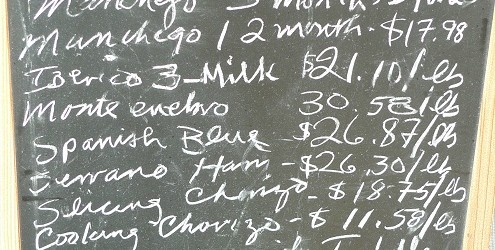 Manchego 3 month
Munchego 12 month - $17.98
Iberico 3-Milk $21.10/lb
Monte enebro 30.58/lb
Spanish Blue $26.87/lb
Serrano Ham - $26.30/lb
Slicing Chorizo - $18.75/lb
Cooking Chorizo - $11.58/lb